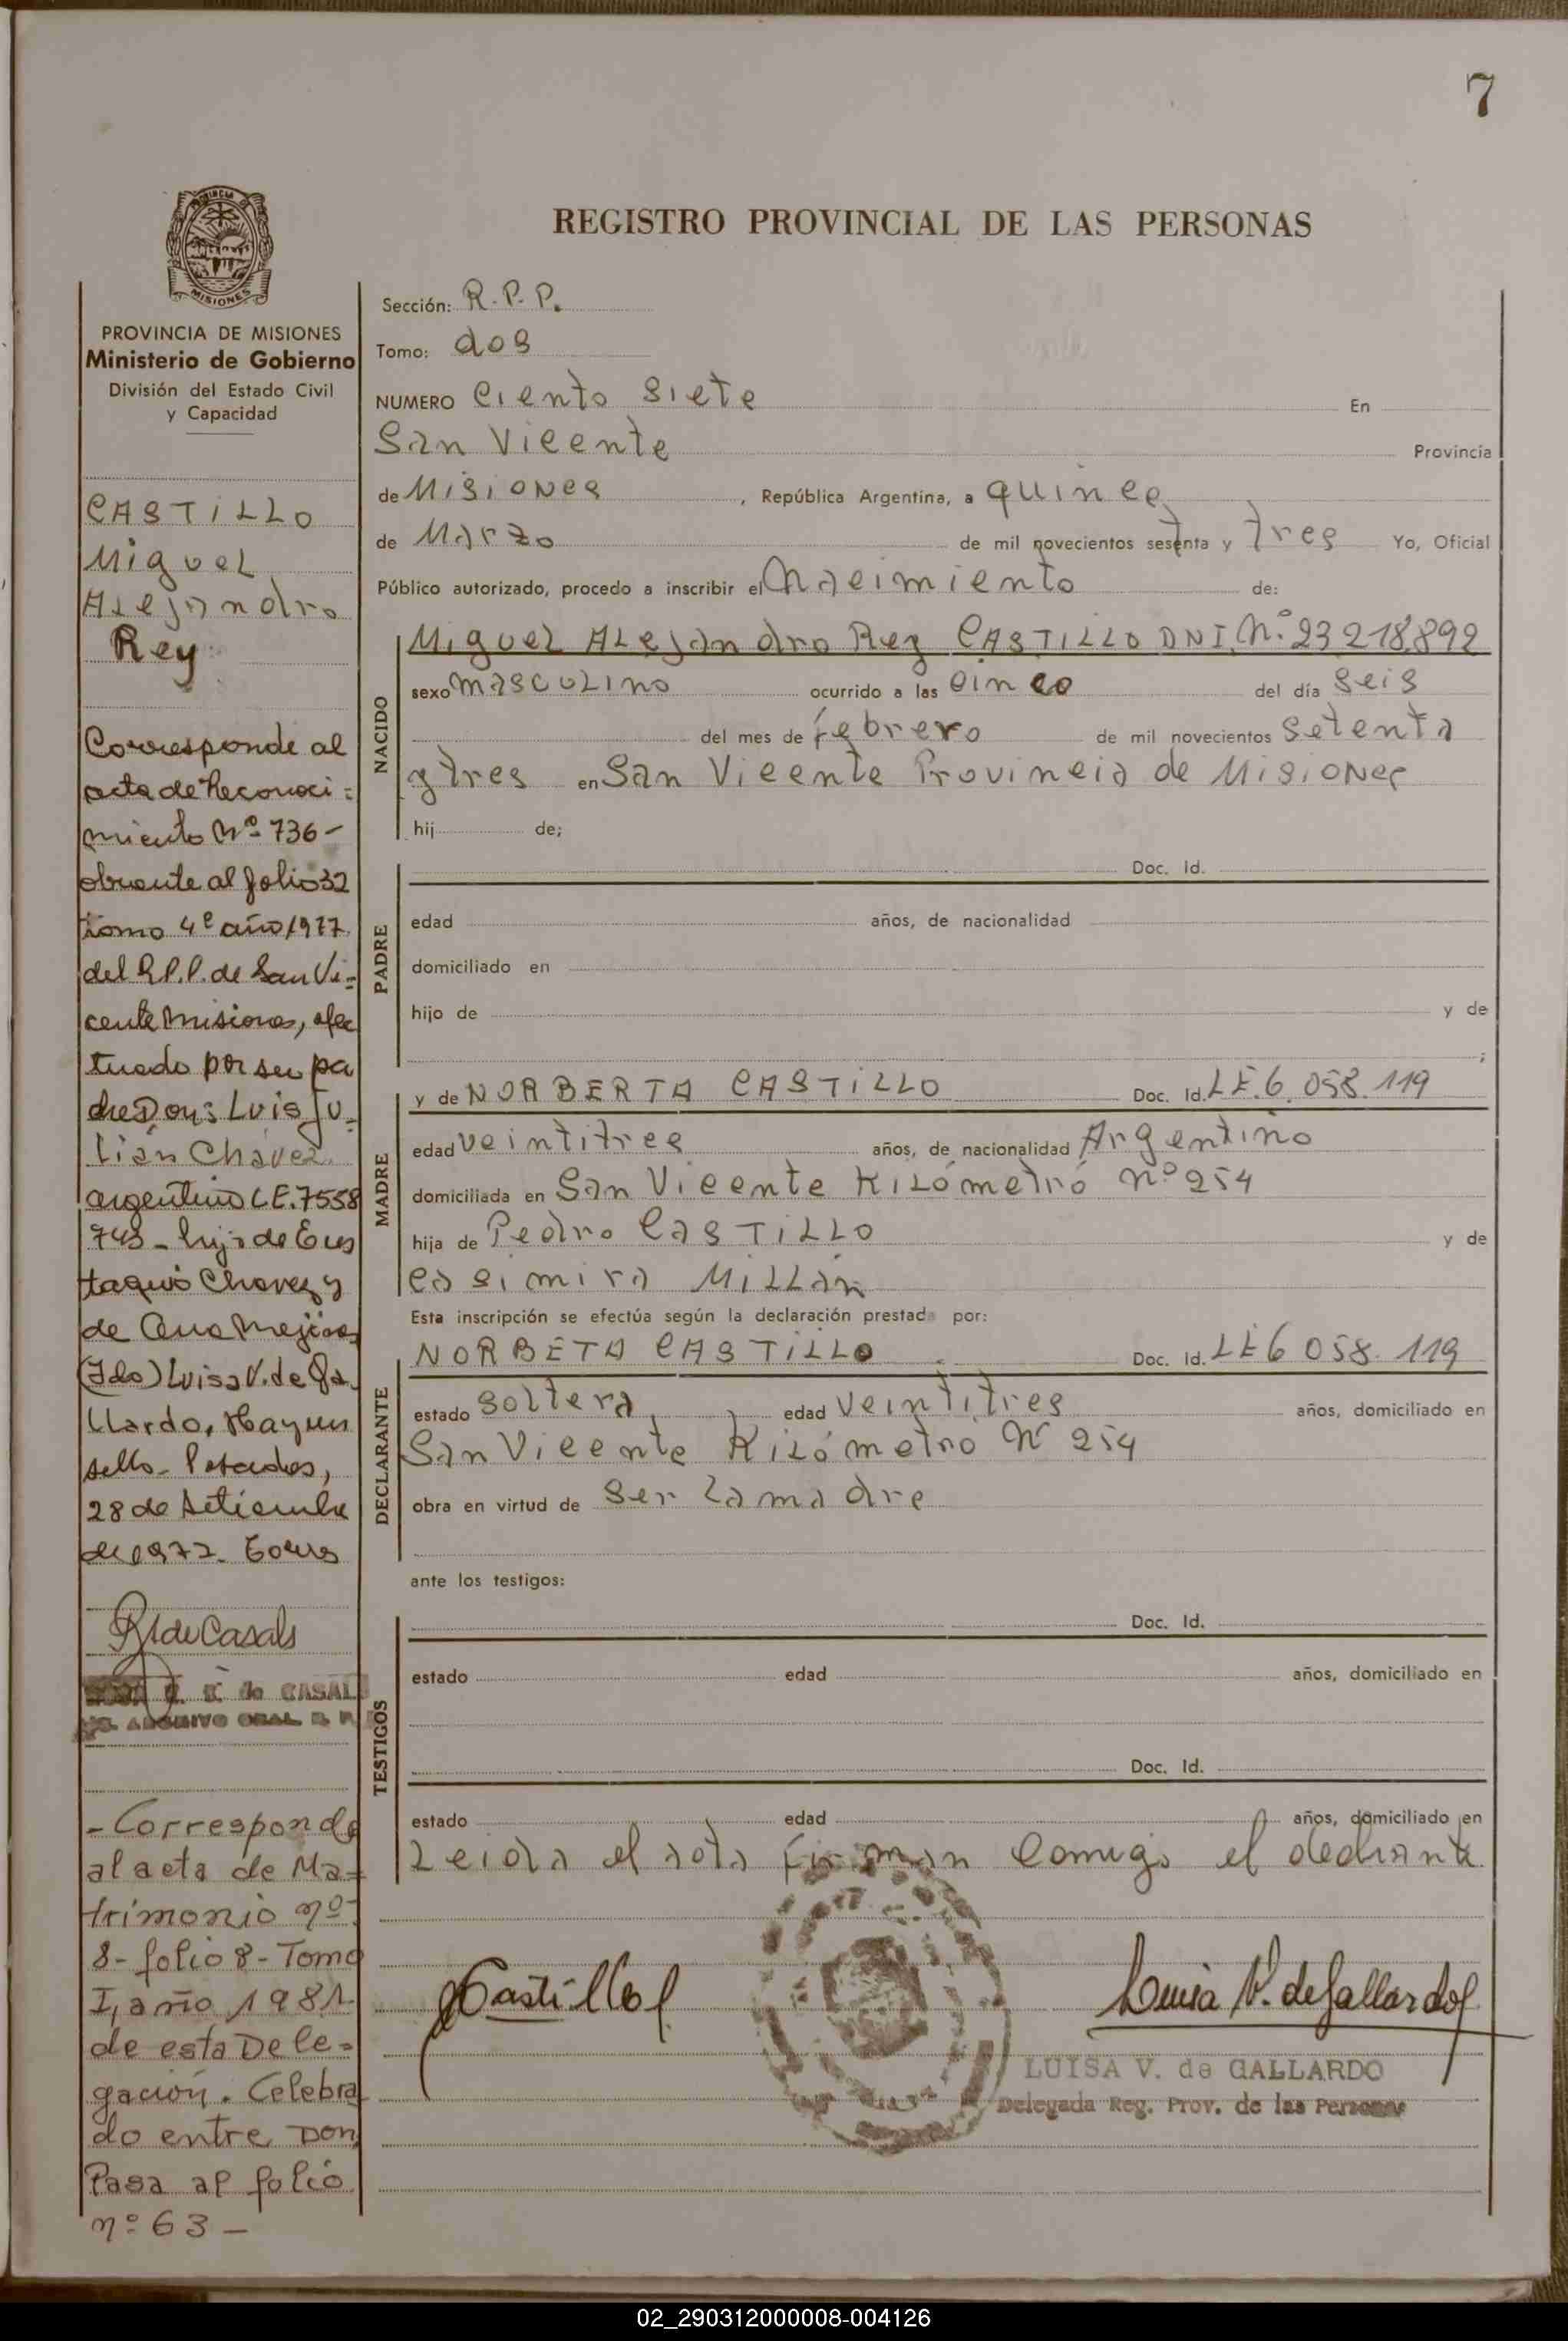 7
PROVINCIA
MISIONES
REGISTRO PROVINCIAL DE LAS PERSONAS
PROVINCIA DE MISIONES
Ministerio de Gobierno
División del Estado Civil
y Capacidad
CASTiLLO
Miguel
ALejandro
Rey
Corresponde al
acta de Reconoci=
miento Nº 736-
obrante al folio 32
tomo 4º año 1977.
del R.P.P. de San Vi=
cente Misiones, efec
tuado por su pa
dre Don: Luis Ju=
lián Chavez
argentino L.E. 7558
743 - hijo de Eus
taquio Chavez y
de Ana
(Fdo) Luisa V. de Ga
llardo, Hay un
sello - Posadas,
28 de Setiembre
de 1977.
R I de Casals
de CASAL
ARCHIVO GRAL. R. P.
- Corresponde
al acta de Ma=
trimonio nº
8 - folio 8 - Tomo
I, año 1981
de esta Dele=
gación. Celebra
do entre Don
Pasa al folio
nº 63 -
Sección: R.P.P.
Tomo: dos
NUMERO Ciento Siete En
San Vicente Provincia
de Misiones , República Argentina, a quince
de Marzo de mil novecientos sesenta y tres Yo, Oficial
Público autorizado, procedo a inscribir el Nacimiento de:
NACIDO
Miguel ALejandro Rey CASTILLO DNI. Nº 23 218.892
sexo masculino ocurrido a las cinco del día seis
del mes de febrero de mil novecientos setenta
y tres en San Vicente Provincia de Misiones
hij de;
PADRE
Doc. Id.
edad años, de nacionalidad
domiciliado en
hijo de y de
;
MADRE
y de NORBERTA CASTiLLO Doc. Id. L.E. 6. 058. 119
edad veintitres años, de nacionalidad Argentino
domiciliada en San Vicente Kilómetro nº 254
hija de Pedro CASTiLLO y de
casimira Millán
Esta inscripción se efectúa según la declaración prestad por:
DECLARANTE
NORBETA CASTiLLO Doc. Id. LE 6 058. 119
estado soltera edad veintitres años, domiciliado en
San Vicente Kilómetro Nº 254
obra en virtud de ser la madre
ante los testigos:
TESTIGOS
Doc. Id.
estado edad años, domiciliado en
Doc. Id.
estado edad años, domiciliado en
Leida el acta firman comigo el
Castillo
Luisa V. de Gallardo
LUISA V. de GALLARDO
Delegada Reg. Prov. de las Personas
02_290312000008-004126